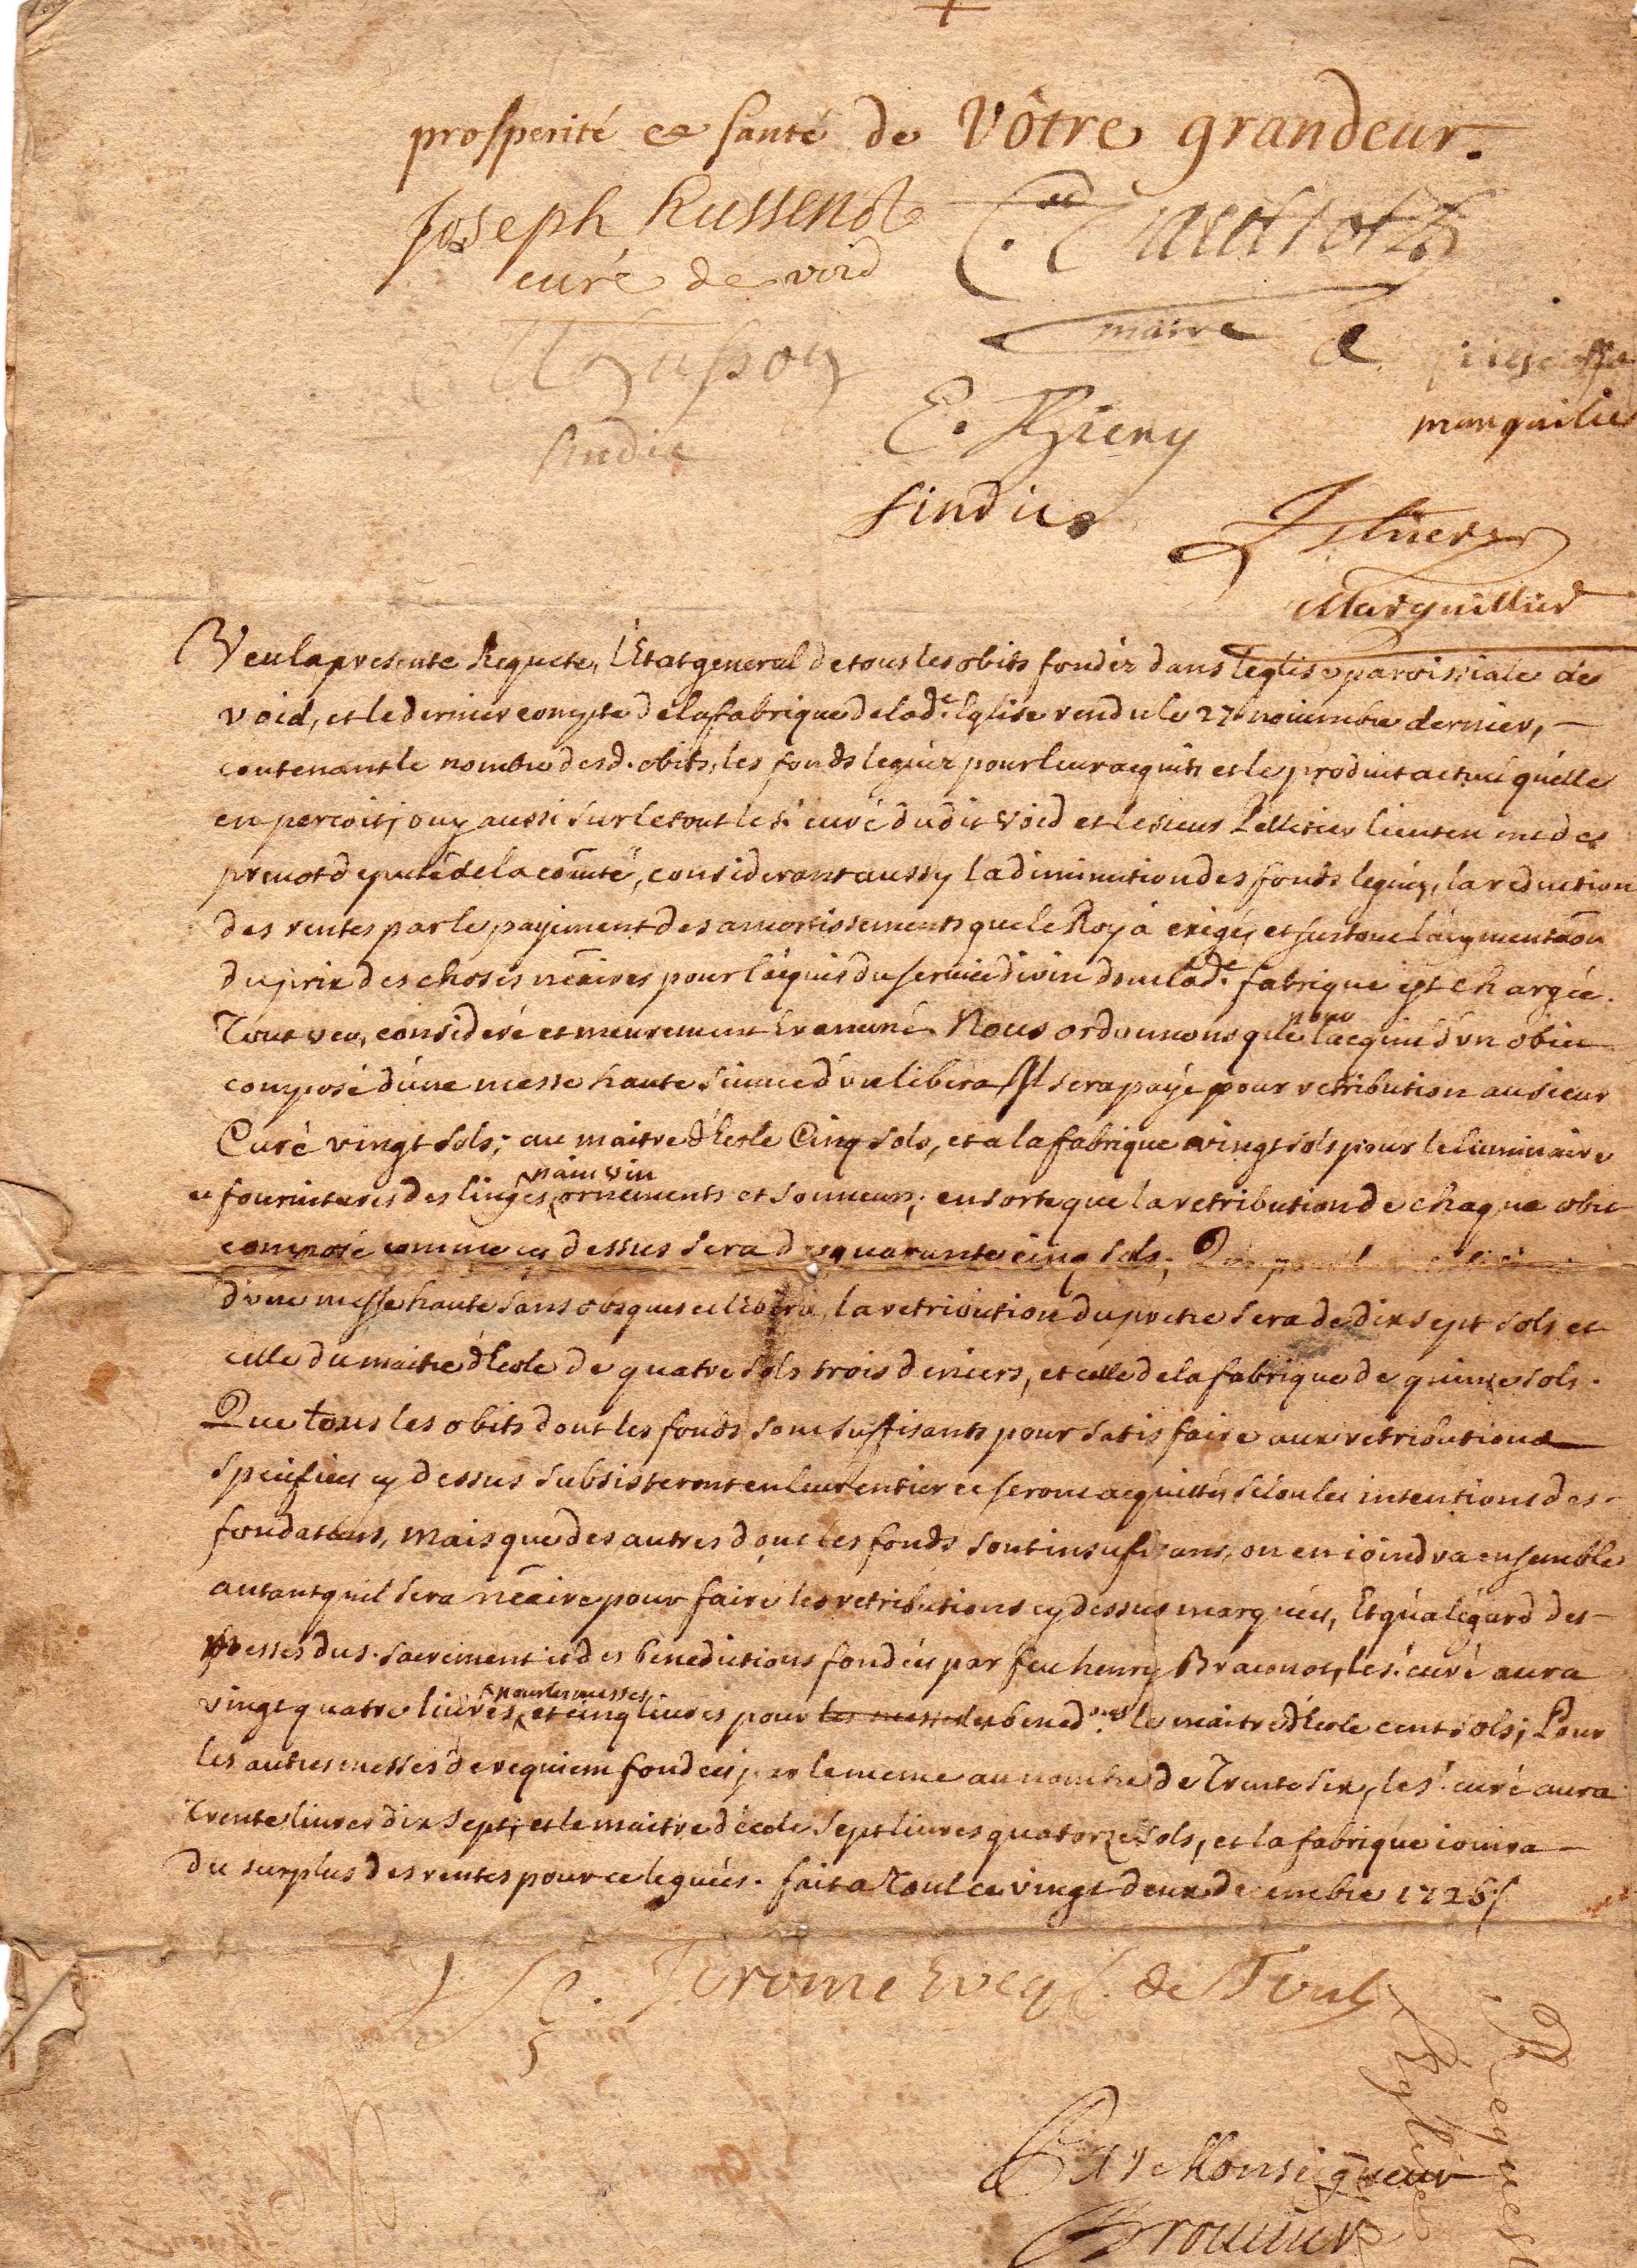 prosperité et santé de Vôtre grandeur.
Joseph Russenot
curé de void
maire
sindic
E. Thiery
sindic
marguilier
Marguillier
Veu la presente Requete, l'Etat general de tous les obits fondéz dans l'eglise paroissiale de
void, et le dernier compte de la fabrique de lad.e Eglise rendu le 27 novembre dernier,
contenant le nombre desd. obits, les fonds leguéz pour leur acquits et le produit actuel qu'elle
en percoit; ouy aussi sur le tout le s.r curé dudit Void et le sieur Pelletier lieuten
prevot deputé de la comté, considerant aussy la diminution des fonds leguéz, la reduction
des rentes par le payement des amortissements que le Roy à exigé, et surtout l'augmentaon
du prix des choses nécaires pour l'acquis du service divin dont lad.e fabrique est chargée.
Tout veu, consideré et meurement Examiné Nous ordonnons que pour l'acquit d'vn obit
composé d'une messe haute suivie d'vn libera Il sera payé pour retribution au sieur
Curé vingt sols; au maitre d'Ecole Cinq sols, et a la fabrique vingt sols pour le luminaire
et fournitures des linges, pain vin ornements et sonneurs; en sorte que la retribution de chaque obit
composé comme cy dessus sera de quarante cinq sols; Que
d'une messe haute sans obseques et libera, la retribution du pretre sera de dix sept sols et
celle du maitre d'Ecole de quatre sols trois deniers, et celle de la fabrique de quinze sols.
Que tous les obits dont les fonds sont suffisants pour satisfaire aux retributions
specifiées cy dessus subsisteront en leur entier et seront acquittés selon les intentions des
fondateurs, mais que des autres dont les fonds sont insufisans, on en joindra ensemble
autant quil sera nécaire pour faire les retributions cy dessus marquées, Et qu'a l'egard des
Messes du s. sacrement et des benedictions fondées par feu henry Braconot, le s.r curé aura
vingt quatre livres pour les messes, et cinq livres pour les messes les bened.ons le maitre d'Ecole cent sols; Pour
les autres messes de requiem fondées par le meme au nombre de Trente six, le s.r curé aura
Trente livres dix sept, et le maitre d'école sept livres quatorze sols, et la fabrique jouira
du surplus des rentes pour ce leguées. fait a Toul ce vingt deux decembre 1726
Jerome Eveq. C. de Toul
Par Monseigneur
Requeste